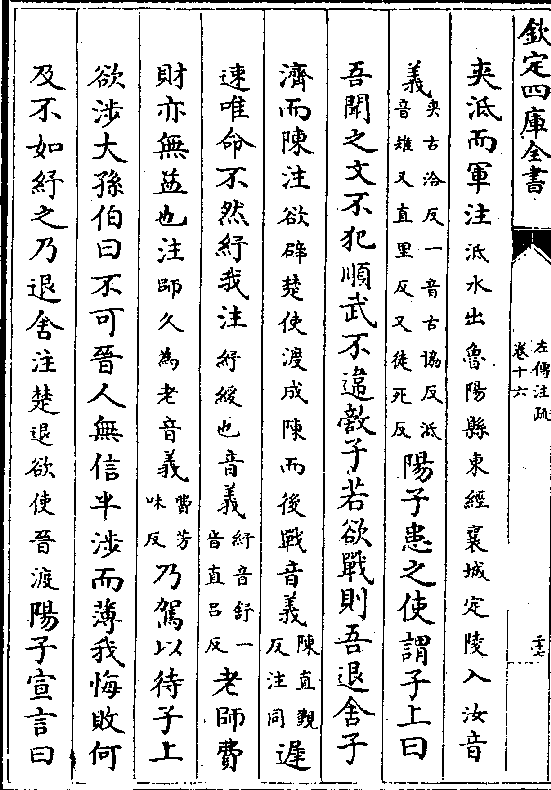 欽定四庫全書
左傳注疏
卷十六
夾泜而軍注泜水出魯陽縣東經襄城定陵入汝音
義夾古洽反一音古協反泜音雉又直里反又徒死反陽子患之使謂子上曰
吾聞之文不犯順武不違敵子若欲戰則吾退舍子
濟而陳注欲辟楚使渡成陳而後戰音義陳直覲反注同遲
速唯命不然紓我注紓緩也音義紓音舒一音直呂反老師費
財亦無益也注師久為老音義費芳味反乃駕以待子上
欲涉大孫伯曰不可晉人無信半涉而薄我悔敗何
及不如紓之乃退舍注楚退欲使晉渡陽子宣言曰